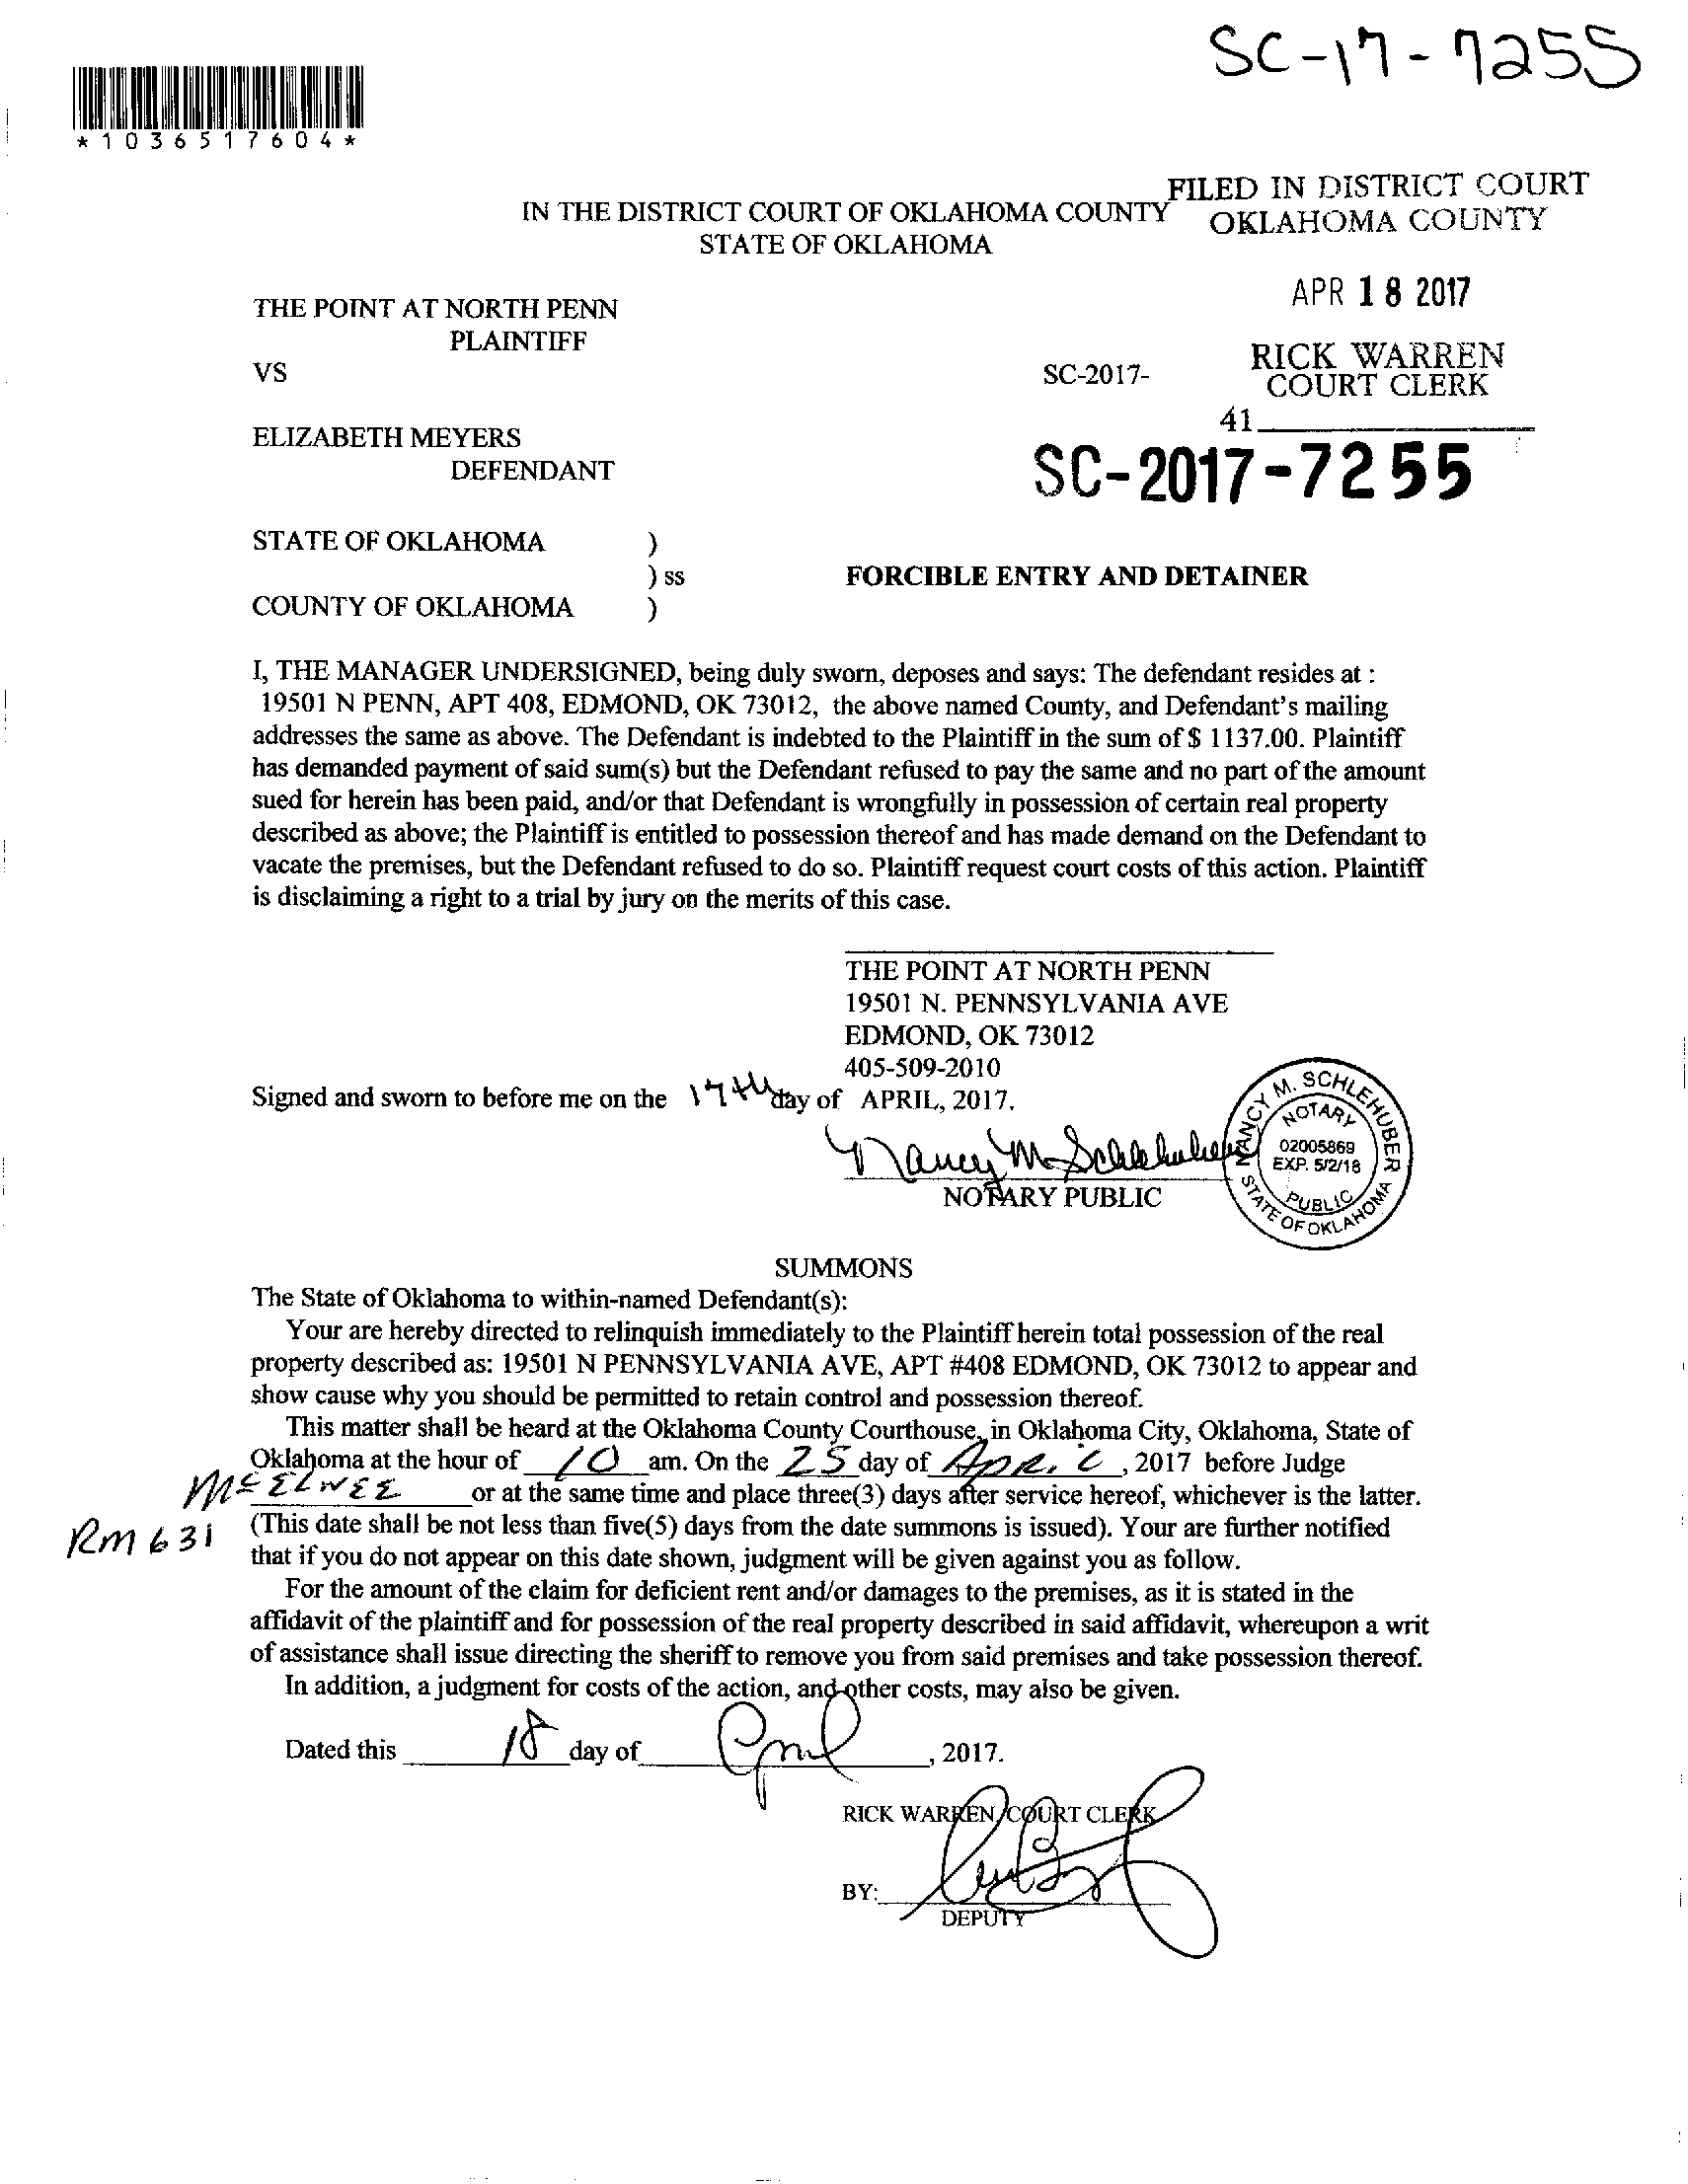 SC-17-7255
*1036517604*
FILED IN DISTRICT COURT
OKLAHOMA COUNTY
IN THE DISTRICT COURT OF OKLAHOMA COUNTY
STATE OF OKLAHOMA
APR 18 2017
THE POINT AT NORTH PENN
PLAINTIFF
RICK WARREN
COURT CLERK
VS
SC-2017-
41
ELIZABETH MEYERS
DEFENDANT
SC-2017-7255
STATE OF OKLAHOMA )
) ss FORCIBLE ENTRY AND DETAINER
COUNTY OF OKLAHOMA )
I, THE MANAGER UNDERSIGNED, being duly sworn, deposes and says: The defendant resides at :
19501 N PENN, APT 408, EDMOND, OK 73012, the above named County, and Defendant's mailing
addresses the same as above. The Defendant is indebted to the Plaintiff in the sum of $ 1137.00. Plaintiff
has demanded payment of said sum(s) but the Defendant refused to pay the same and no part of the amount
sued for herein has been paid, and/or that Defendant is wrongfully in possession of certain real property
described as above; the Plaintiff is entitled to possession thereof and has made demand on the Defendant to
vacate the premises, but the Defendant refused to do so. Plaintiff request court costs of this action. Plaintiff
is disclaiming a right to a trial by jury on the merits of this case.
THE POINT AT NORTH PENN
19501 N. PENNSYLVANIA AVE
EDMOND, OK 73012
405-509-2010
Signed and sworn to before me on the 17th day of APRIL, 2017.
Nancy M. Schlehuber
NOTARY PUBLIC
NANCY M. SCHLEHUBER
NOTARY
02005869
EXP. 5/2/18
PUBLIC
STATE OF OKLAHOMA
SUMMONS
The State of Oklahoma to within-named Defendant(s):
Your are hereby directed to relinquish immediately to the Plaintiff herein total possession of the real
property described as: 19501 N PENNSYLVANIA AVE, APT #408 EDMOND, OK 73012 to appear and
show cause why you should be permitted to retain control and possession thereof.
This matter shall be heard at the Oklahoma County Courthouse, in Oklahoma City, Oklahoma, State of
Oklahoma at the hour of 10 am. On the 25 day of April, 2017 before Judge
McELWEE or at the same time and place three(3) days after service hereof, whichever is the latter.
Rm 631 (This date shall be not less than five(5) days from the date summons is issued). Your are further notified
that if you do not appear on this date shown, judgment will be given against you as follow.
For the amount of the claim for deficient rent and/or damages to the premises, as it is stated in the
affidavit of the plaintiff and for possession of the real property described in said affidavit, whereupon a writ
of assistance shall issue directing the sheriff to remove you from said premises and take possession thereof.
In addition, a judgment for costs of the action, and other costs, may also be given.
Dated this 18 day of April, 2017.
RICK WARREN, COURT CLERK
BY:
DEPUTY